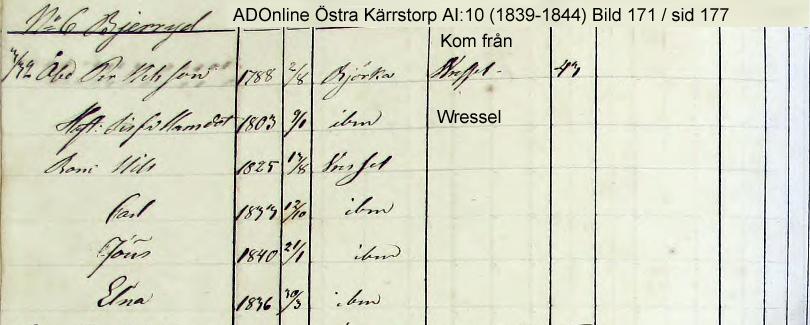 ADOnline Östra Kärrstorp AI:10 (1839-1844) Bild 171 / sid 177
No 6 Bjerryd
Kom från
Åbo Per Nilsson 1788 2/8 Björka Wressel 43
Wressel
Hust: Sissa Hansdot 1803 9/1 ibm
Barn Nils 1825 17/8 Wressel
Carl 1833 12/10 ibm
Jöns 1840 21/1 ibm
Elna 1836 30/3 ibm